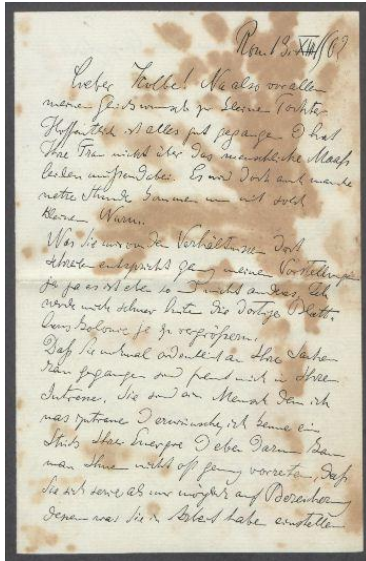 Rom 13. XII /02
Lieber Kolbe! Na also vor allem
meinen Glückwunsch zu kleinen Tochter
Hoffentlich ist alles gut gegangen & hat
Ihre Frau nicht über das menschliche Maass
leiden müssen dabei. Es wird doch auch manche
nette Stunde kommen nun mit solch
kleinen Wurm.
Was Sie mir von den Verhältnissen dort
schreiben entspricht ganz meinen Vorstellungen
ja ja es ist eben so & nicht anders. Ich
werde mich schwer hüten die dortige
Colonie je zu vergrößern.
Daß Sie mal ordentlich an Ihre Sachen
ran gegangen sind freut mich in Ihrem
Interesse. Sie sind ein Mensch dem ich
was zutraue & erwünsche, ich kenne ein
Stück Ihrer Energie & eben darum kann
man Ihnen nicht oft genug vorreden, daß
Sie sich so viel als nur möglich auf
denen was Sie in Arbeit haben einstellen